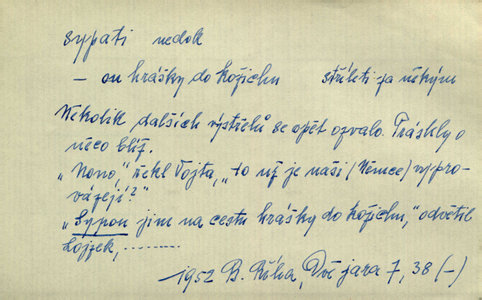 sypati nedok
– ou hrášky do kožichu stříleti za někým
Několik dalších výstřelů se opět ozvalo. Práskly o
něco blíž.
„Nono,“ řekl Vojta, „to už je naši (Němce) vypro-
vázejí?“
„Sypou jim na cestu hrášky do kožichu,“ odvětil
Lojzek, ........
1952 B. Říha, Dvě jara 7, 38 (–)